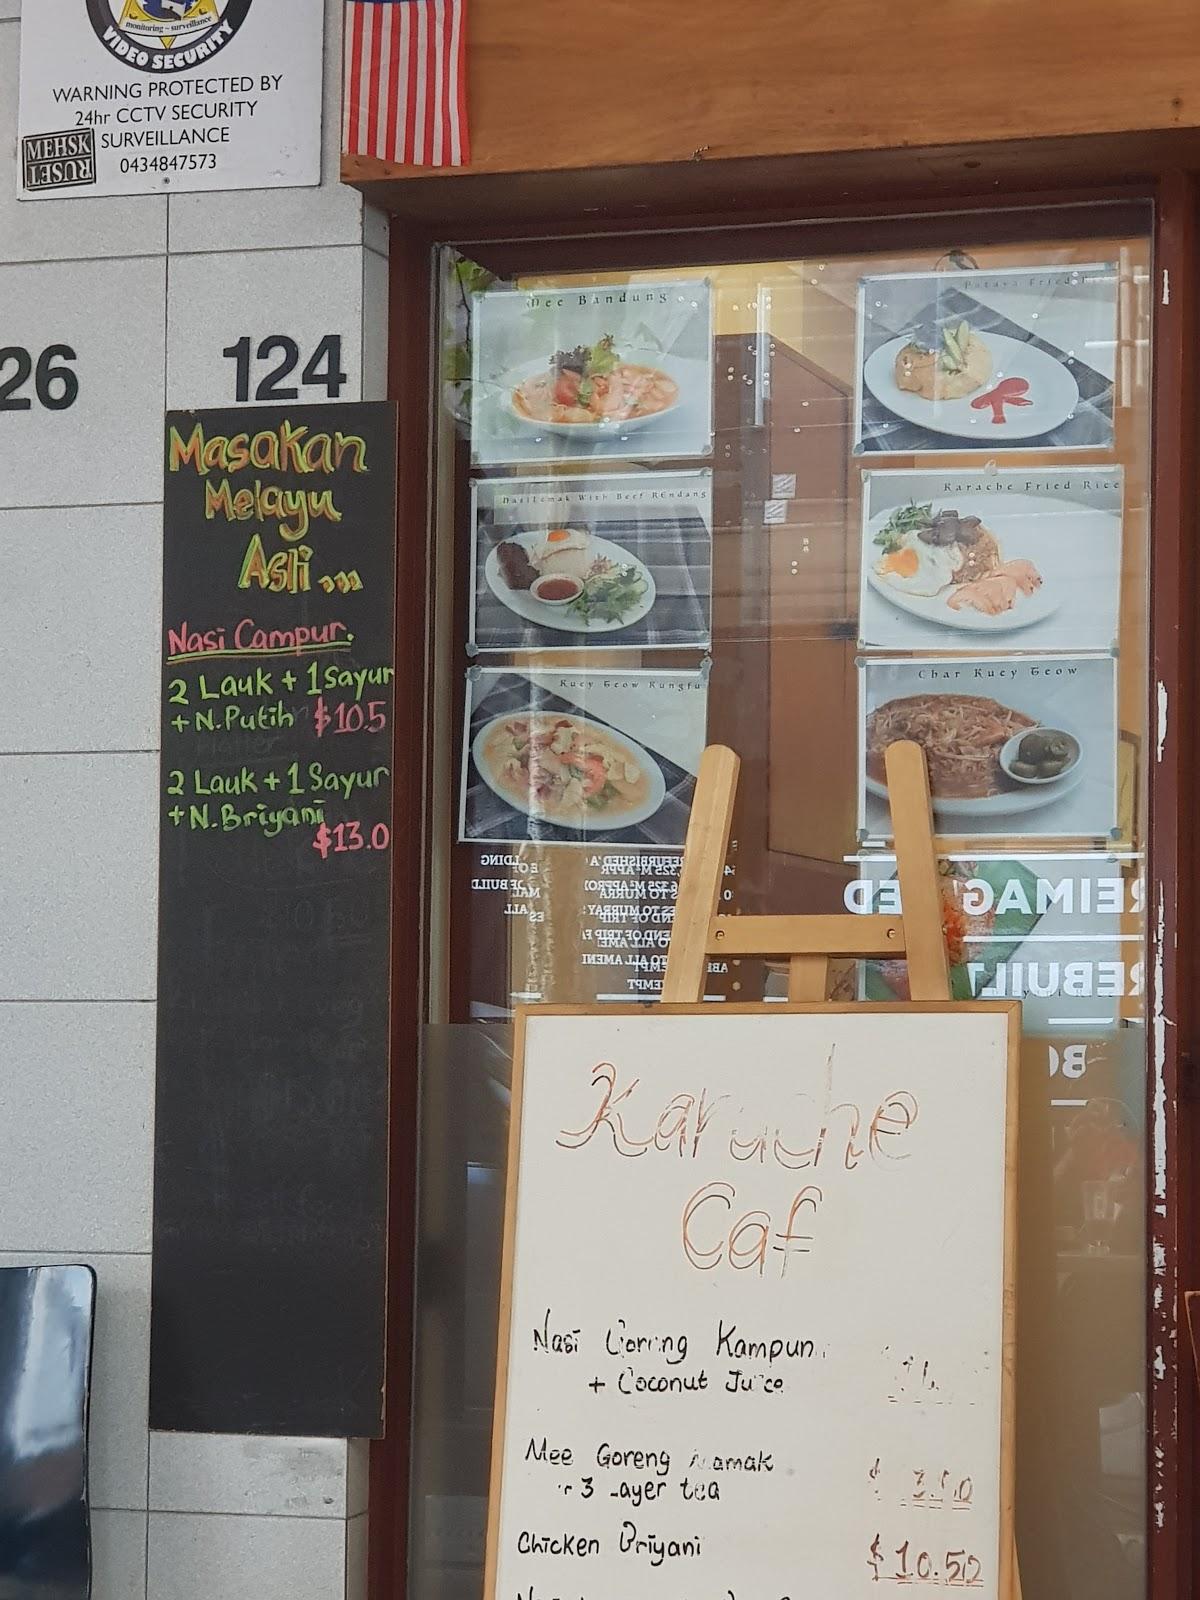 monitoring ~ surveillance
VIDEO SECURITY
WARNING PROTECTED BY
24hr CCTV SECURITY
SURVEILLANCE
0434847573
MEHSK
RUSET
26
124
Masakan
Melayu
Asli ...
Nasi Campur.
2 Lauk + 1 Sayur
+ N.Putih $10.5
2 Lauk + 1 Sayur
+ N.Briyani
$13.0
Mee Bandung
Pataya Fried
NasiLemak With Beef REndang
Karache Fried Rice
Kuey Teow Kungfu
Char Kuey Teow
REBUILT
Karache
Caf
Nasi Goreng Kampun
+ Coconut Juice
Mee Goreng Mamak
3 Layer tea
Chicken Briyani $10.50